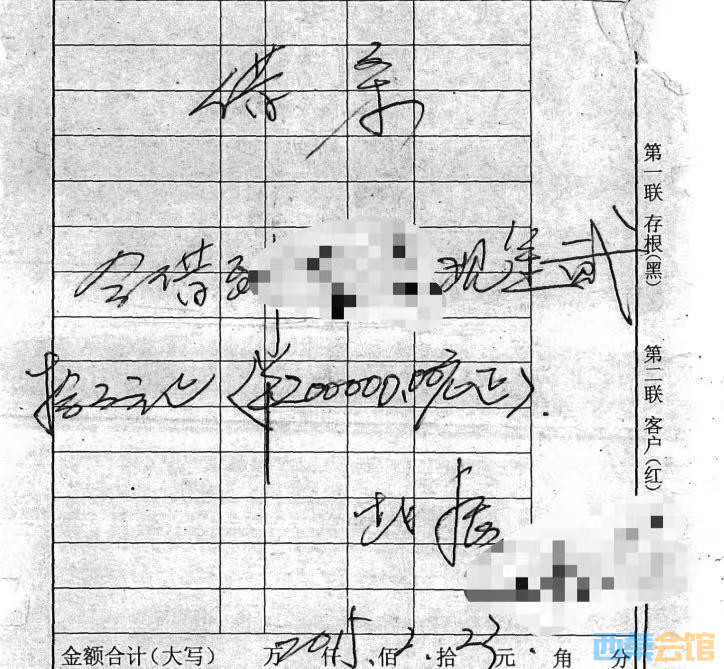 借条
今借到 现金贰
拾万元正（¥200000.00元正）.
赵振
2015.2.23
金额合计(大写) 万 仟 佰 拾 元 角 分
第一联 存根(黑)
第二联 客户(红)
西祠会馆